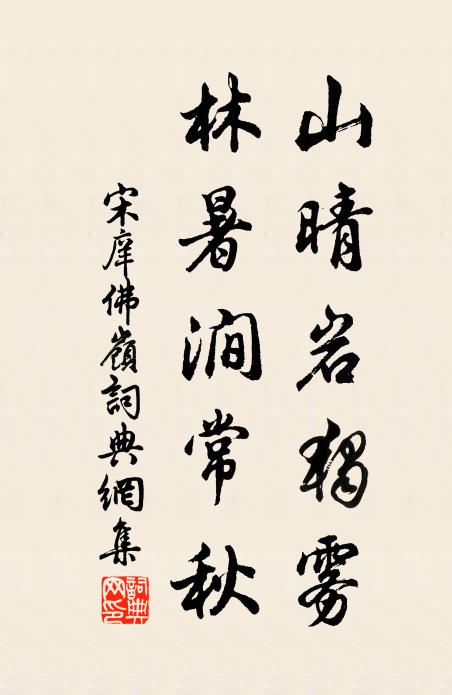 山晴岩獨雾
林暑澗常秋
宋庠佛嶺詞典網集
詞典网印